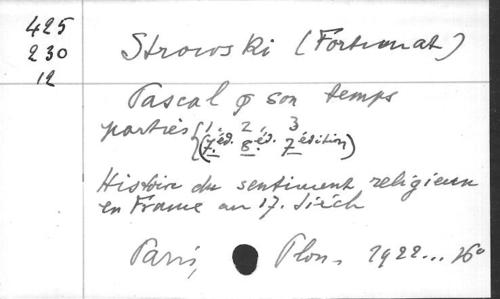 425
230
12
Strowski (Fortunat)
Pascal & son temps
parties 1, 2, 3
(7. éd. 8. éd. 7 édition)
Histoire du sentiment religieux
en France au 17. siècle
Paris, Plon. 1922... 16°